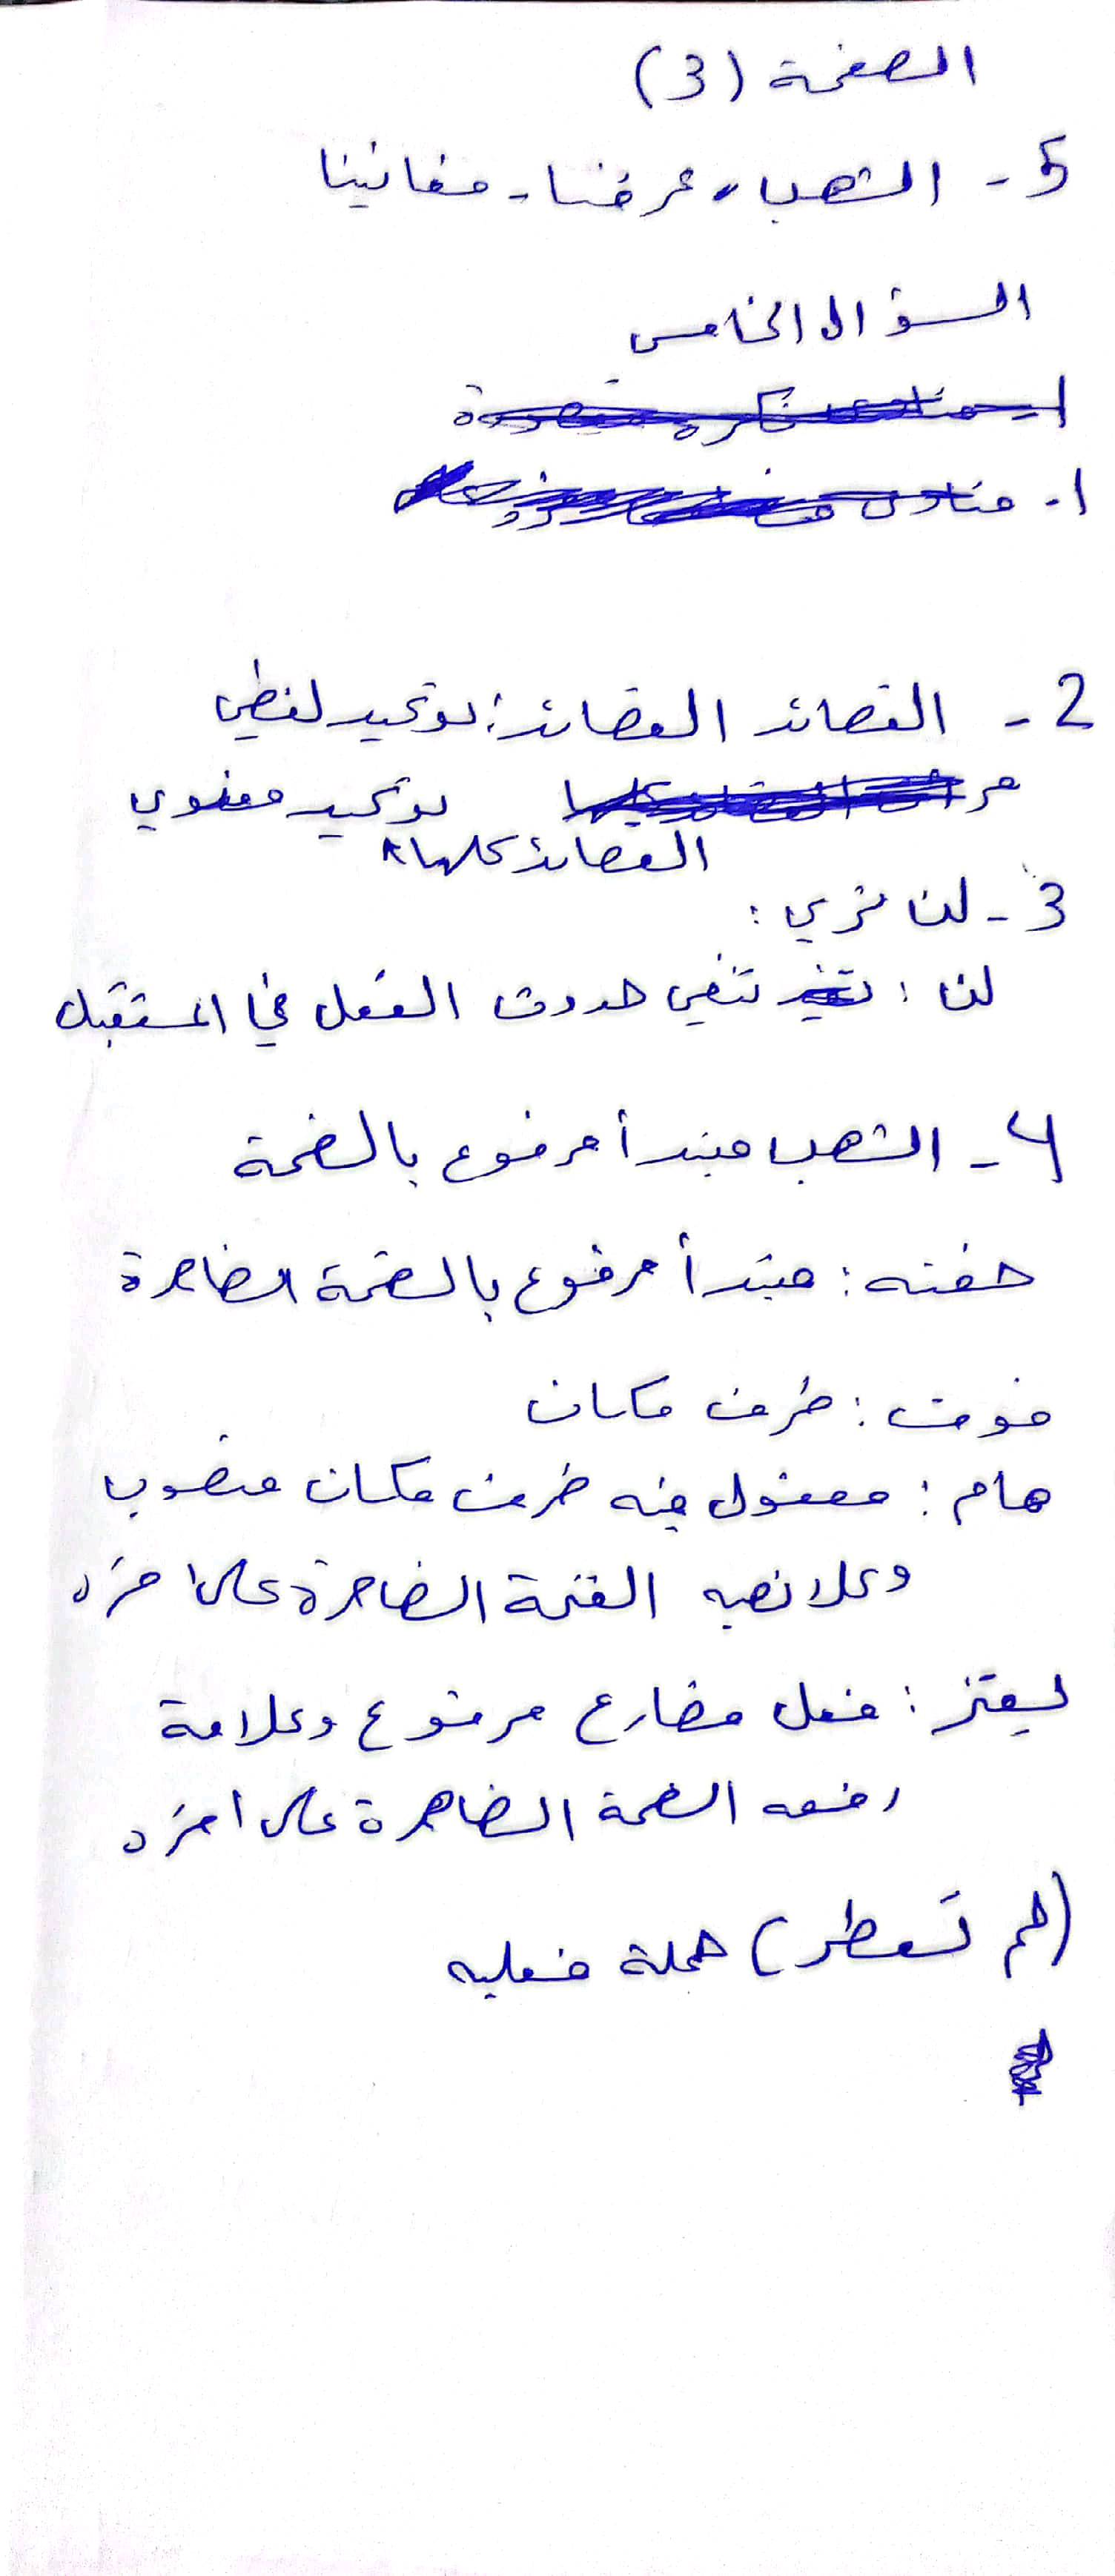 الصفحة (3)
5 - الشهب - عرفنا - مغانينا
السؤال الخامس
1 - منادى نكرة مقصودة
1 - منادى
2 - القصائد القصائد: توكيد لفظي
توكيد معنوي
القصائد كلها
3 - لن نري :
لن : تنفي حدوث الفعل في المستقبل
4 - الشهب مبتدأ مرفوع بالضمة
حفنه : مبتدأ مرفوع بالضمة الضاهرة
فوق : ظرف مكان
هام : مفعول فيه ظرف مكان منصوب
وعلا نصبه الفتحة الضاهرة على اخره
يعتز : فعل مضارع مرفوع وعلامة
رفعه الضمة الضاهرة على اخره
(لم تمطر) جملة فعليه